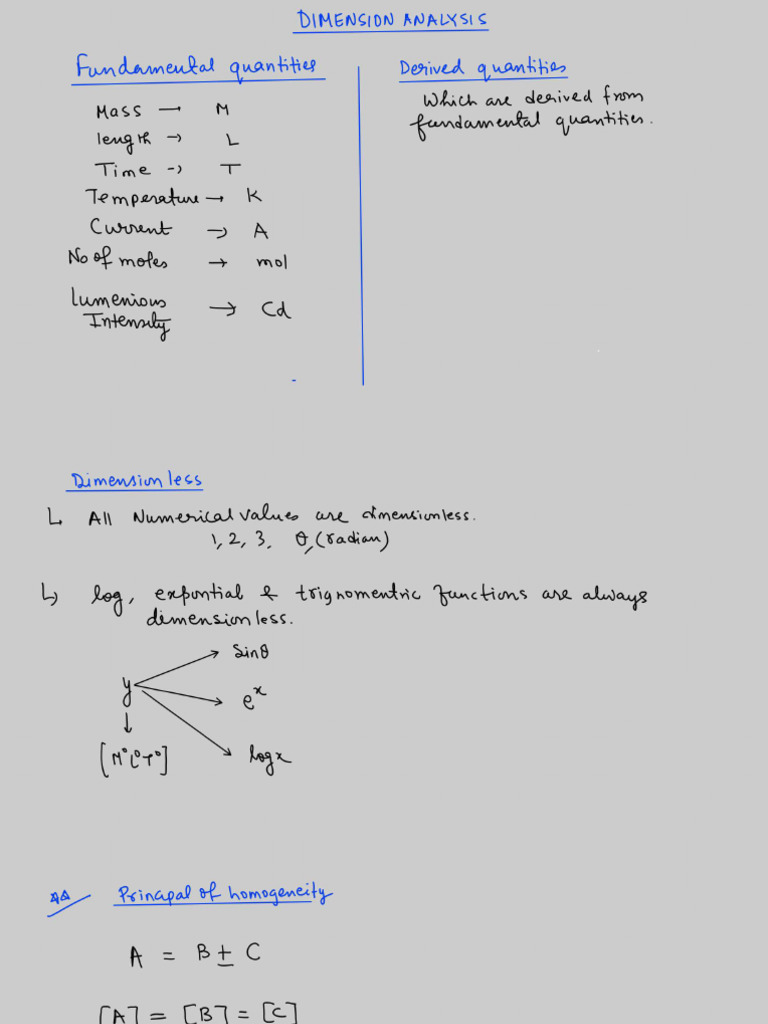 DIMENSION ANALYSIS
Fundamental quantities
Mass → M
length → L
Time → T
Temperature → K
Current → A
No of moles → mol
Lumenious
Intensity → Cd
Derived quantities
Which are derived from
fundamental quantities.
Dimensionless
↳ All Numerical values are dimensionless.
1, 2, 3, θ, (radian)
↳ log, expontial & trignomentric functions are always
dimensionless.
y → sinθ
→ e^x
→ log x
↓
[M°L°T°]
Principal of homogeneity
A = B ± C
[A] = [B] = [C]